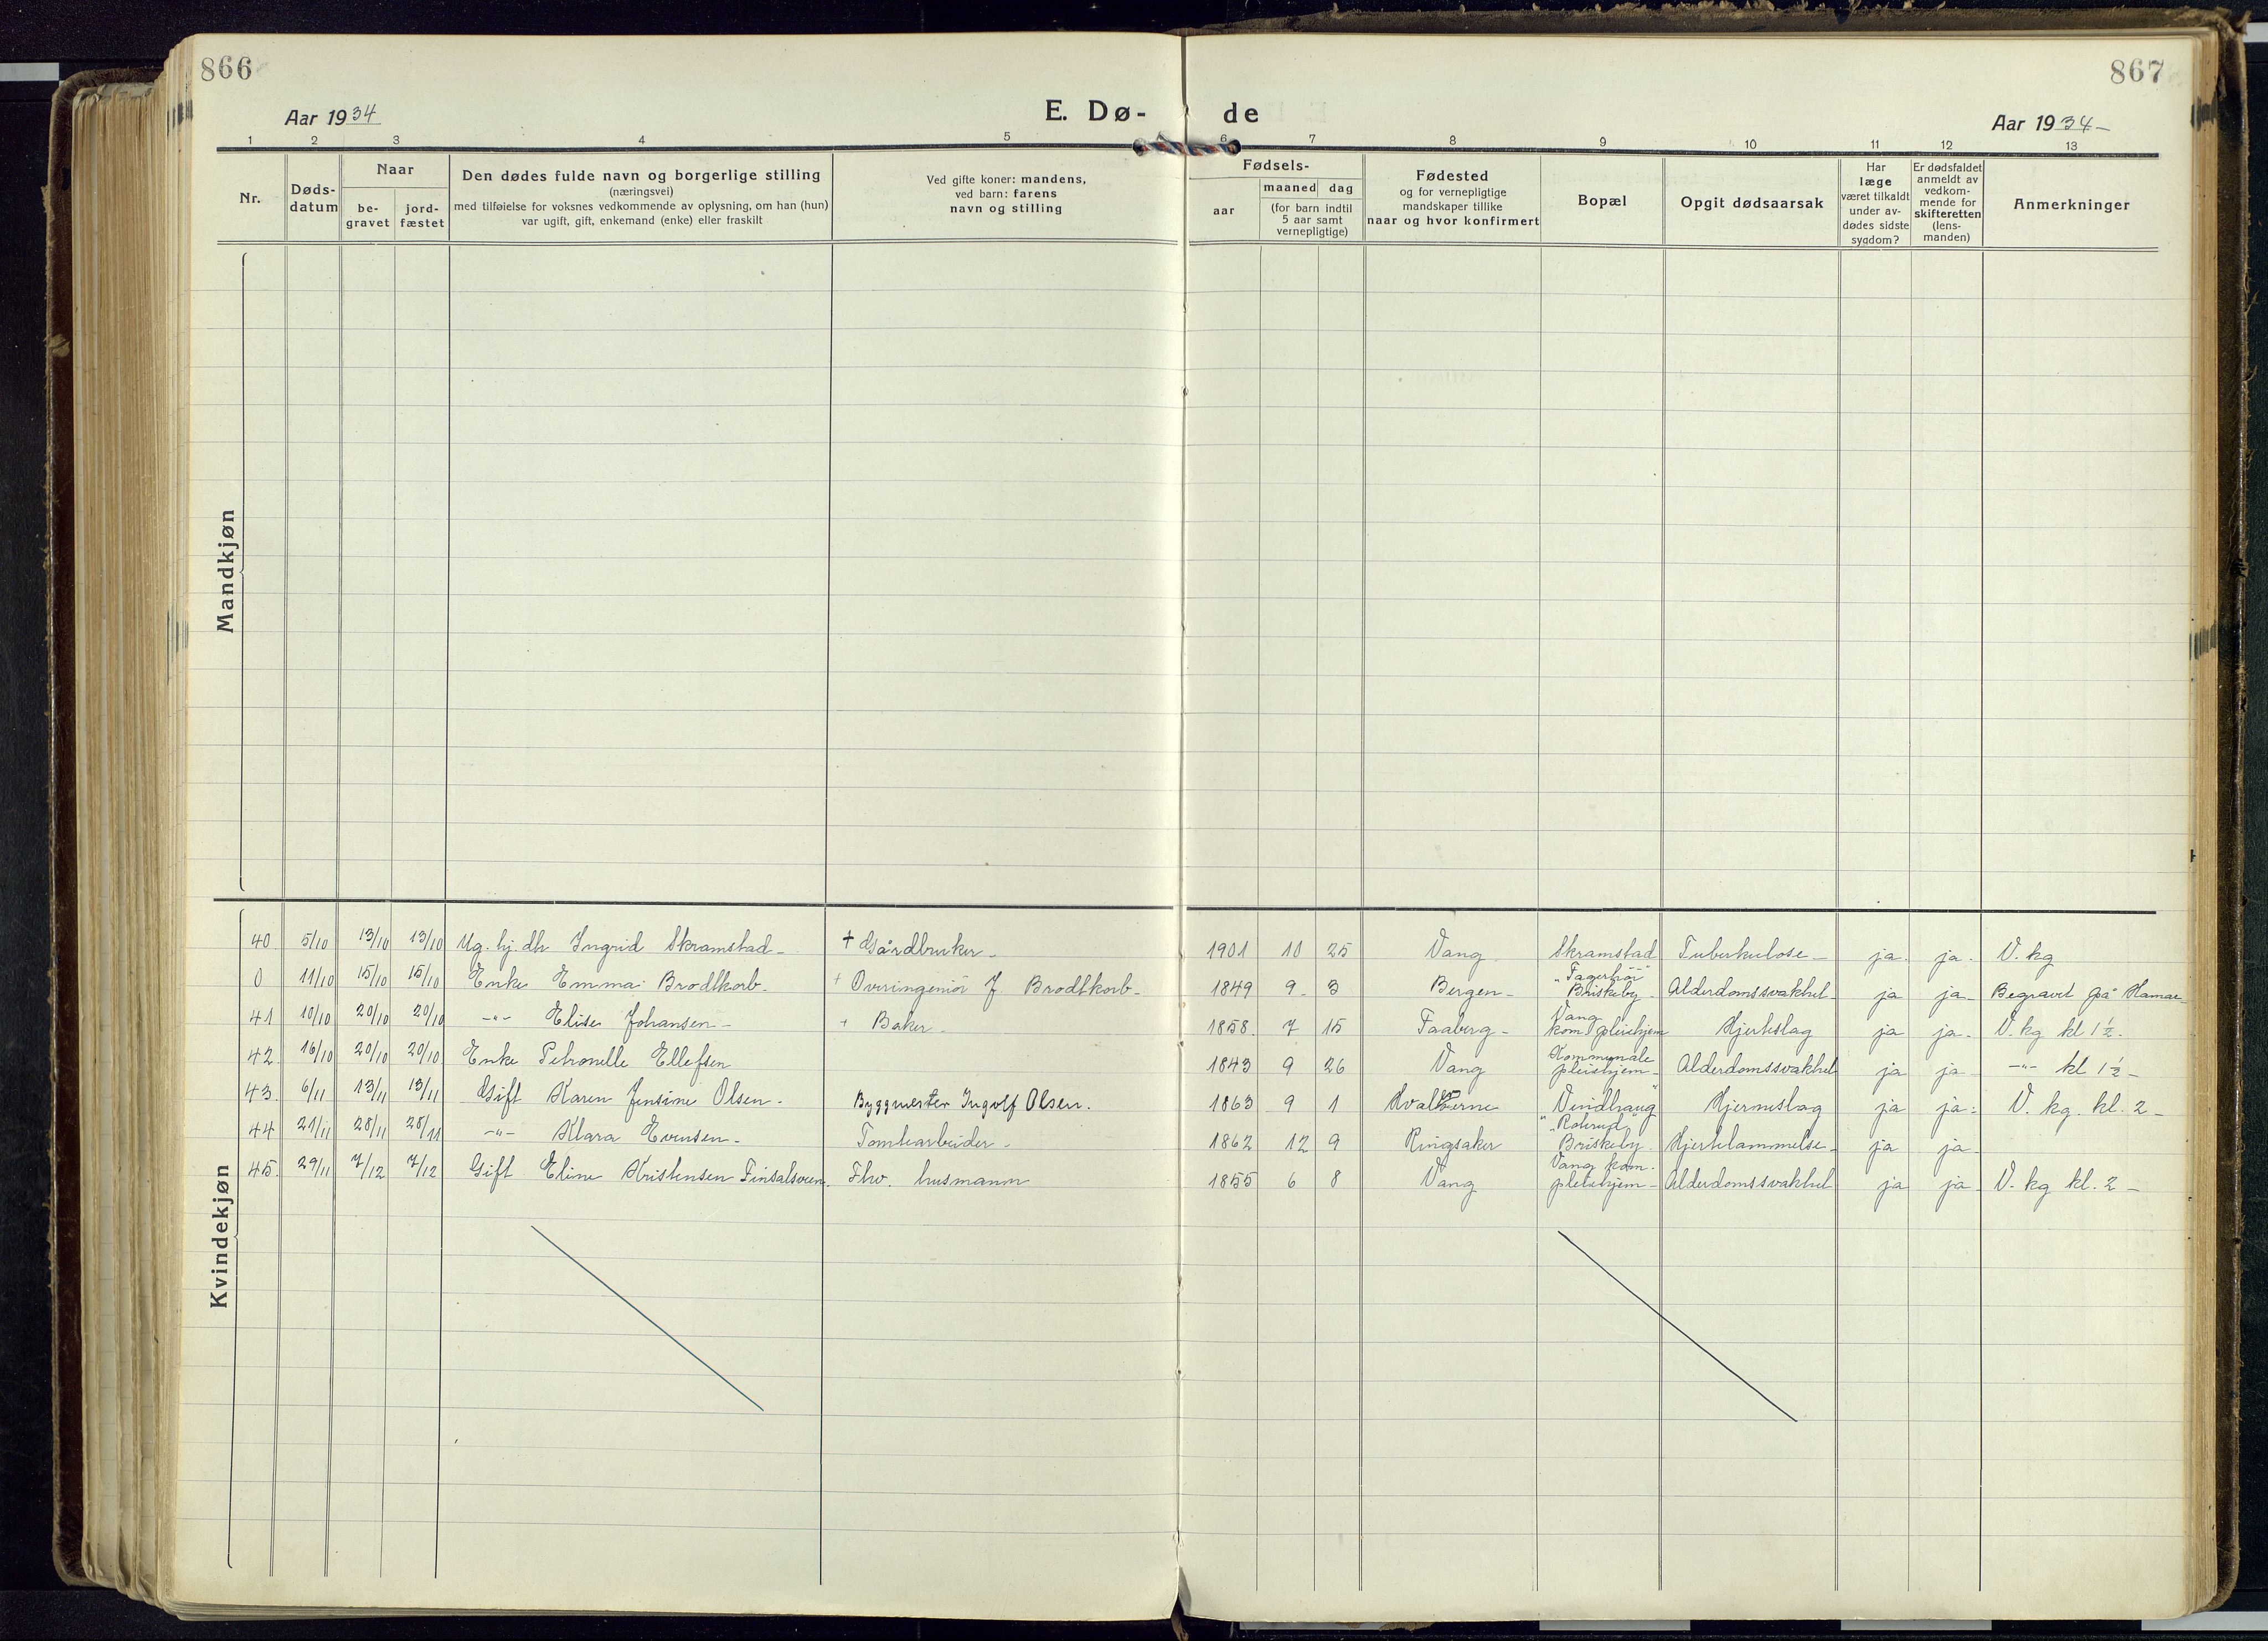 866
867
Aar 1934
E. Dø-
de
Aar 1934-
1 2 3 4 5 6 7 8 9 10 11 12 13
Nr.
Døds-
datum
Naar
be-
gravet
jord-
fæstet
Den dødes fulde navn og borgerlige stilling
(næringsvei)
med tilføielse for voksnes vedkommende av oplysning, om han (hun)
var ugift, gift, enkemand (enke) eller fraskilt
Ved gifte koner: mandens,
ved barn: farens
navn og stilling
Fødsels-
aar
maaned dag
(for barn indtil
5 aar samt
vernepligtige)
Fødested
og for vernepligtige
mandskaper tillike
naar og hvor konfirmert
Bopæl
Opgit dødsaarsak
Har
læge
været tilkaldt
under av-
dødes sidste
sygdom?
Er dødsfaldet
anmeldt av
vedkom-
mende for
skifteretten
(lens-
manden)
Anmerkninger
Mandkjøn
Kvindekjøn
40 5/10 13/10 13/10 Ug. hj. dtr Ingrid Skramstad - + Gårdbruker - 1901 10 25 Vang Skramstad Tuberkulose - ja. ja. V. kg
0 11/10 15/10 15/10 Enke Emma Brodtkorb. + Overingeniør J. Brodtkorb - 1849 9 3 Bergen - "Fagerhøi" Briskeby - Alderdomssvakhet - ja ja - Begravet på Hamar
41 10/10 20/10 20/10 -"- Elise Johansen - + Baker - 1858. 7 15 Faaberg - Vang kom. pleiehjem Hjerteslag ja ja. V. kg kl 1½.
42. 16/10 20/10 20/10 Enke Petronelle Ellefsen 1843 9 26 Vang Kommunale pleiehjem - Alderdomssvakhet ja ja - -"- kl 1½ -
43. 6/11 13/11 13/11 Gift Karen Jensine Olsen - Byggmester Ingolf Olsen. 1863 9 1 Vindhaug Hjerneslag ja ja. V. kg. kl. 2 -
44 21/11 28/11 28/11 -"- Klara Evensen - Tomtearbeider - 1862 12 9 Ringsaker Briskeby. Hjertelammelse - ja ja
45. 29/11 7/12 7/12 Gift Eline Kristensen Finsalsveen. Fhv. husmann 1855 6 8 Vang Vang kom. pleiehjem - Alderdomssvakhet ja ja - V. kg kl. 2 -